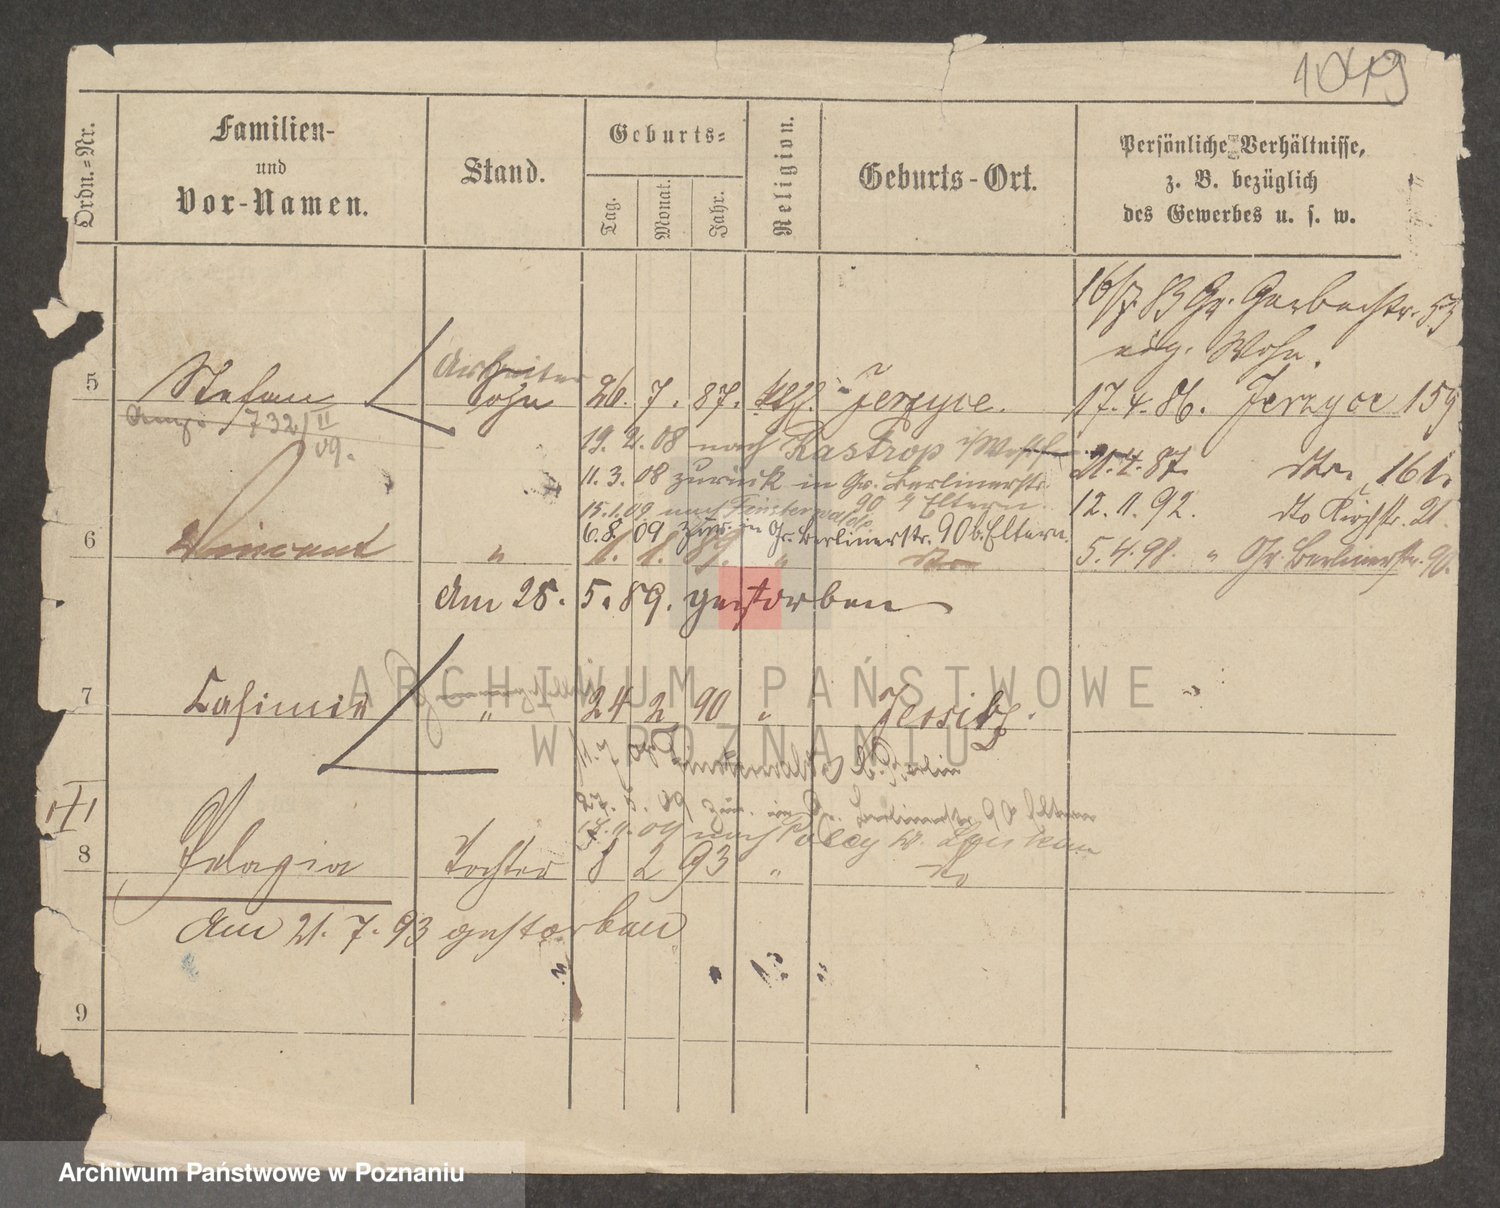 1049
Ordn.=Nr.
Familien-
und
Vor-Namen.
Stand.
Geburts=
Tag.
Monat.
Jahr.
Religion.
Geburts-Ort.
Persönliche Verhältnisse,
z. B. bezüglich
des Gewerbes u. s. w.
16/7 83 Gr. Gerberstr. 53
Wohn.
5 Stefan Arbeiter Sohn 26. 7. 87. kth. Jerzyce. 17. 4. 86. Jerzyce 159
732/II
09.
19. 2. 08 nach Kastrop i/Westf
21. 4. 87 dto 161.
11. 3. 08 zurück in Gr. Berlinerstr.
90 Eltern
15.1.09 nach Finsterwalde
12. 11. 92. dto Kirchstr. 21.
6.8.09 zur. in Gr. Berlinerstr. 90 b. Eltern.
6 Vincent " 1. 1. 89. " dto
5. 4. 98. " Gr Berlinerstr. 90.
Am 28. 5. 89. gestorben
7 Casimir " 24 2 90 " Jersitz.
b. Berlin
zur. in Gr. Berlinerstr 90 Eltern
09 nach
8 Pelagia Tochter 8 2 93 " dto
Am 21. 7. 93 gestorben
9
ARCHIWUM PAŃSTWOWE
W POZNANIU
Archiwum Państwowe w Poznaniu